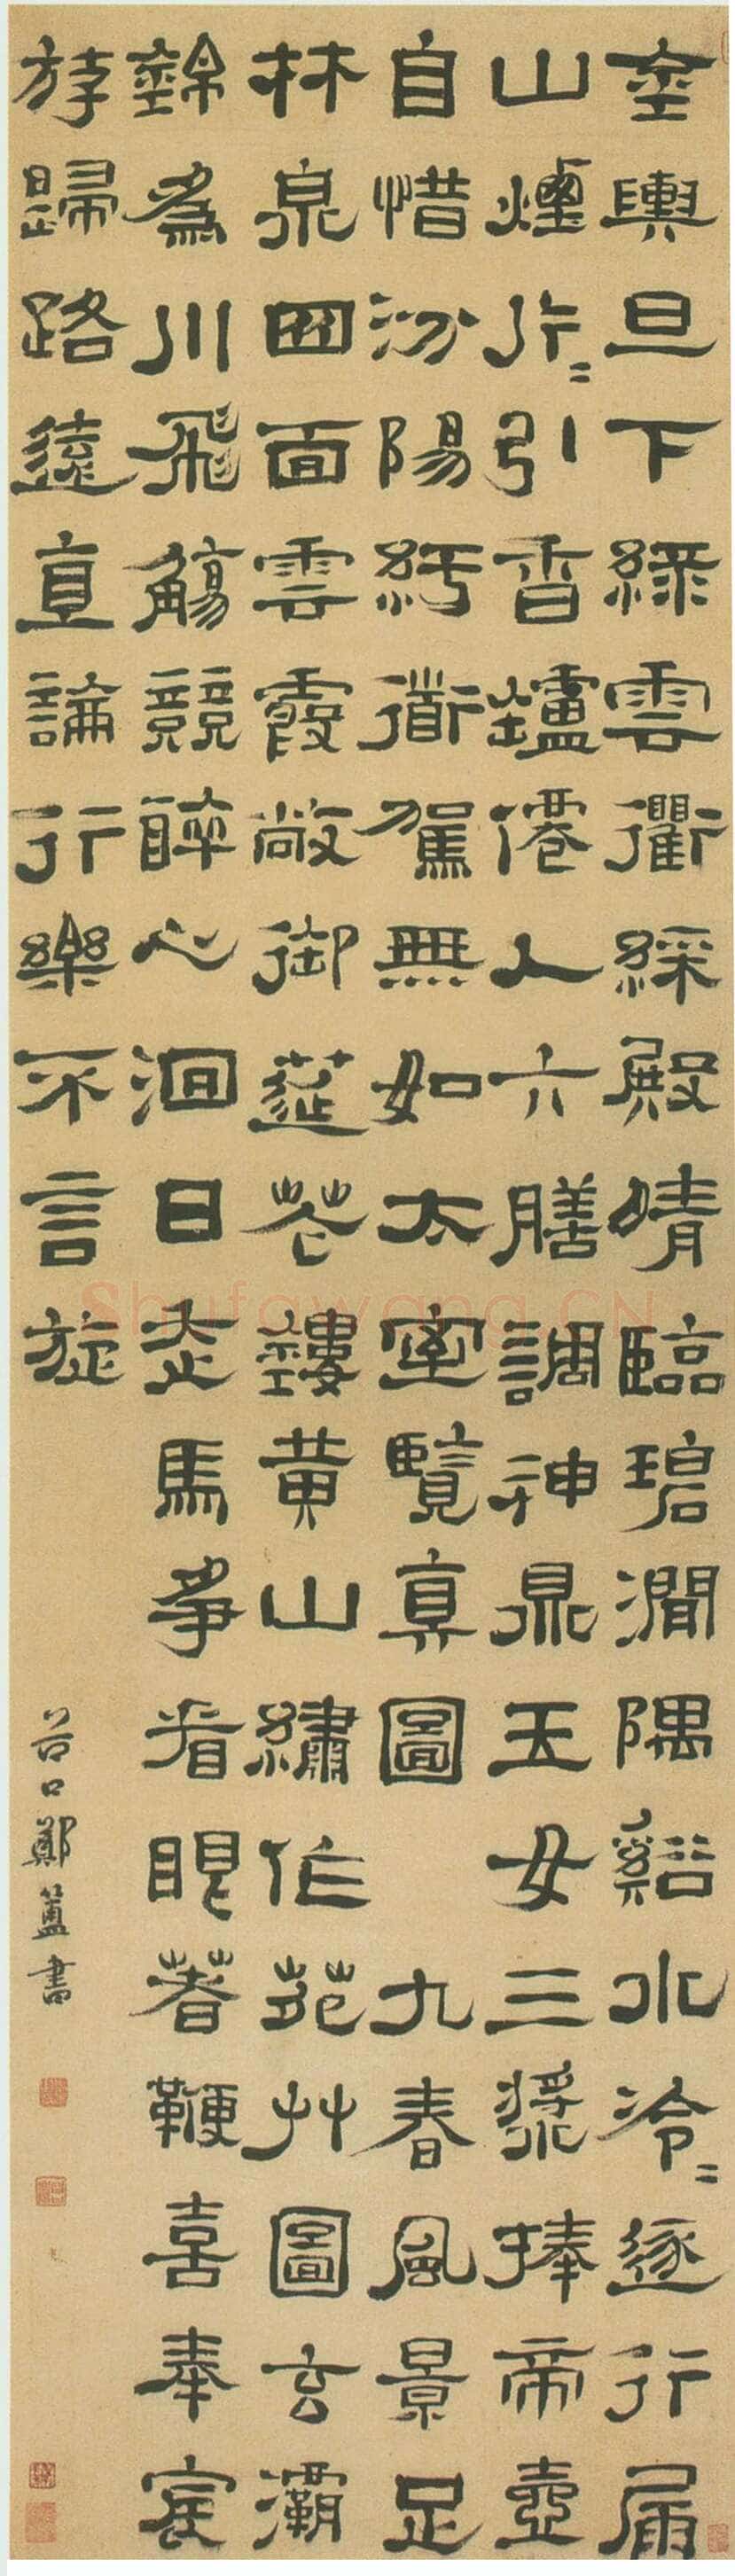 金輿旦下綠雲衢綵殿晴臨碧澗隅谿水泠〻逐行屚
山煙片〻引香鑪僊人六膳調神鼎玉女三漿捧帝壺
自惜汾陽紆衟駕無如太室覽真圖 九春風景足
林泉四面雲霞敞御莚花鏤黃山繡作苑艸圖玄灞
錦為川飛觴競醉心洄日走馬爭前眼著鞭喜奉宸
斿歸路遠直論行樂不言旋
谷口鄭簠書
Shufawang.CN